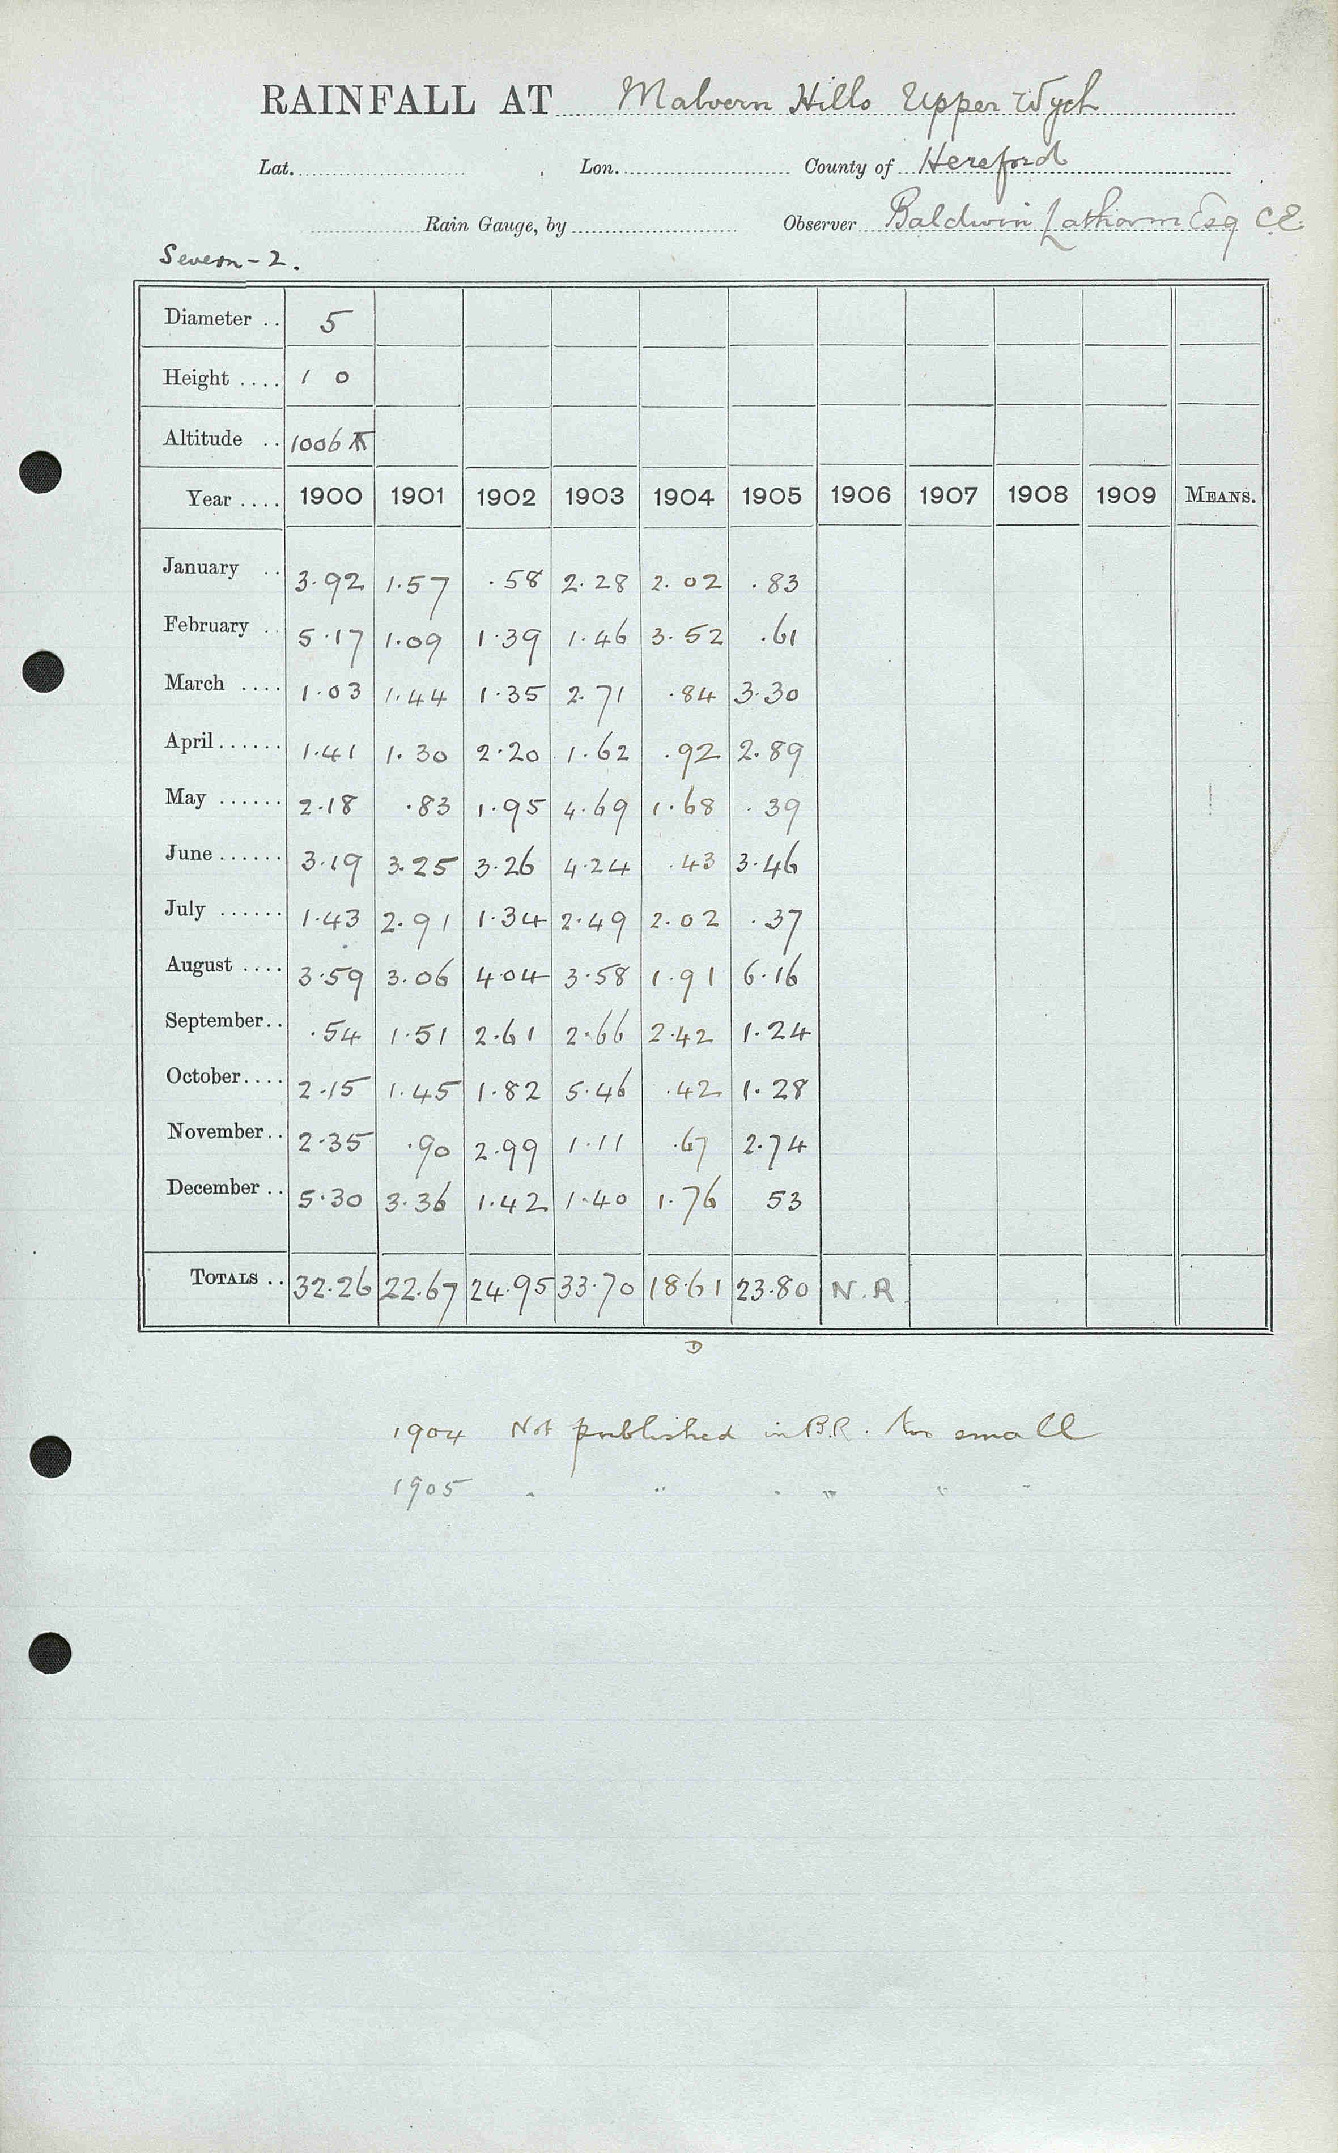 RAINFALL AT Malvern Hills Upper Wych
Lat. Lon. County of Hereford
Rain Gauge, by Observer Baldwin Latham Esq C.E.
Severn - 2.
Diameter .. 5
Height .... 1 0
Altitude .. 1006 ft
Year .... 1900 1901 1902 1903 1904 1905 1906 1907 1908 1909 MEANS.
January .. 3.92 1.57 .58 2.28 2.02 .83
February .. 5.17 1.09 1.39 1.46 3.52 .61
March .... 1.03 1.44 1.35 2.71 .84 3.30
April ...... 1.41 1.30 2.20 1.62 .92 2.89
May ...... 2.18 .83 1.95 4.69 1.68 .39
June ...... 3.19 3.25 3.26 4.24 .43 3.46
July ...... 1.43 2.91 1.34 2.49 2.02 .37
August .... 3.59 3.06 4.04 3.58 1.91 6.16
September.. .54 1.51 2.61 2.66 2.42 1.24
October.... 2.15 1.45 1.82 5.46 .42 1.28
November.. 2.35 .90 2.99 1.11 .67 2.74
December .. 5.30 3.36 1.42 1.40 1.76 53
TOTALS .. 32.26 22.67 24.95 33.70 18.61 23.80 N.R.
D
1904 Not published in B.R. too small
1905 " " " " " "